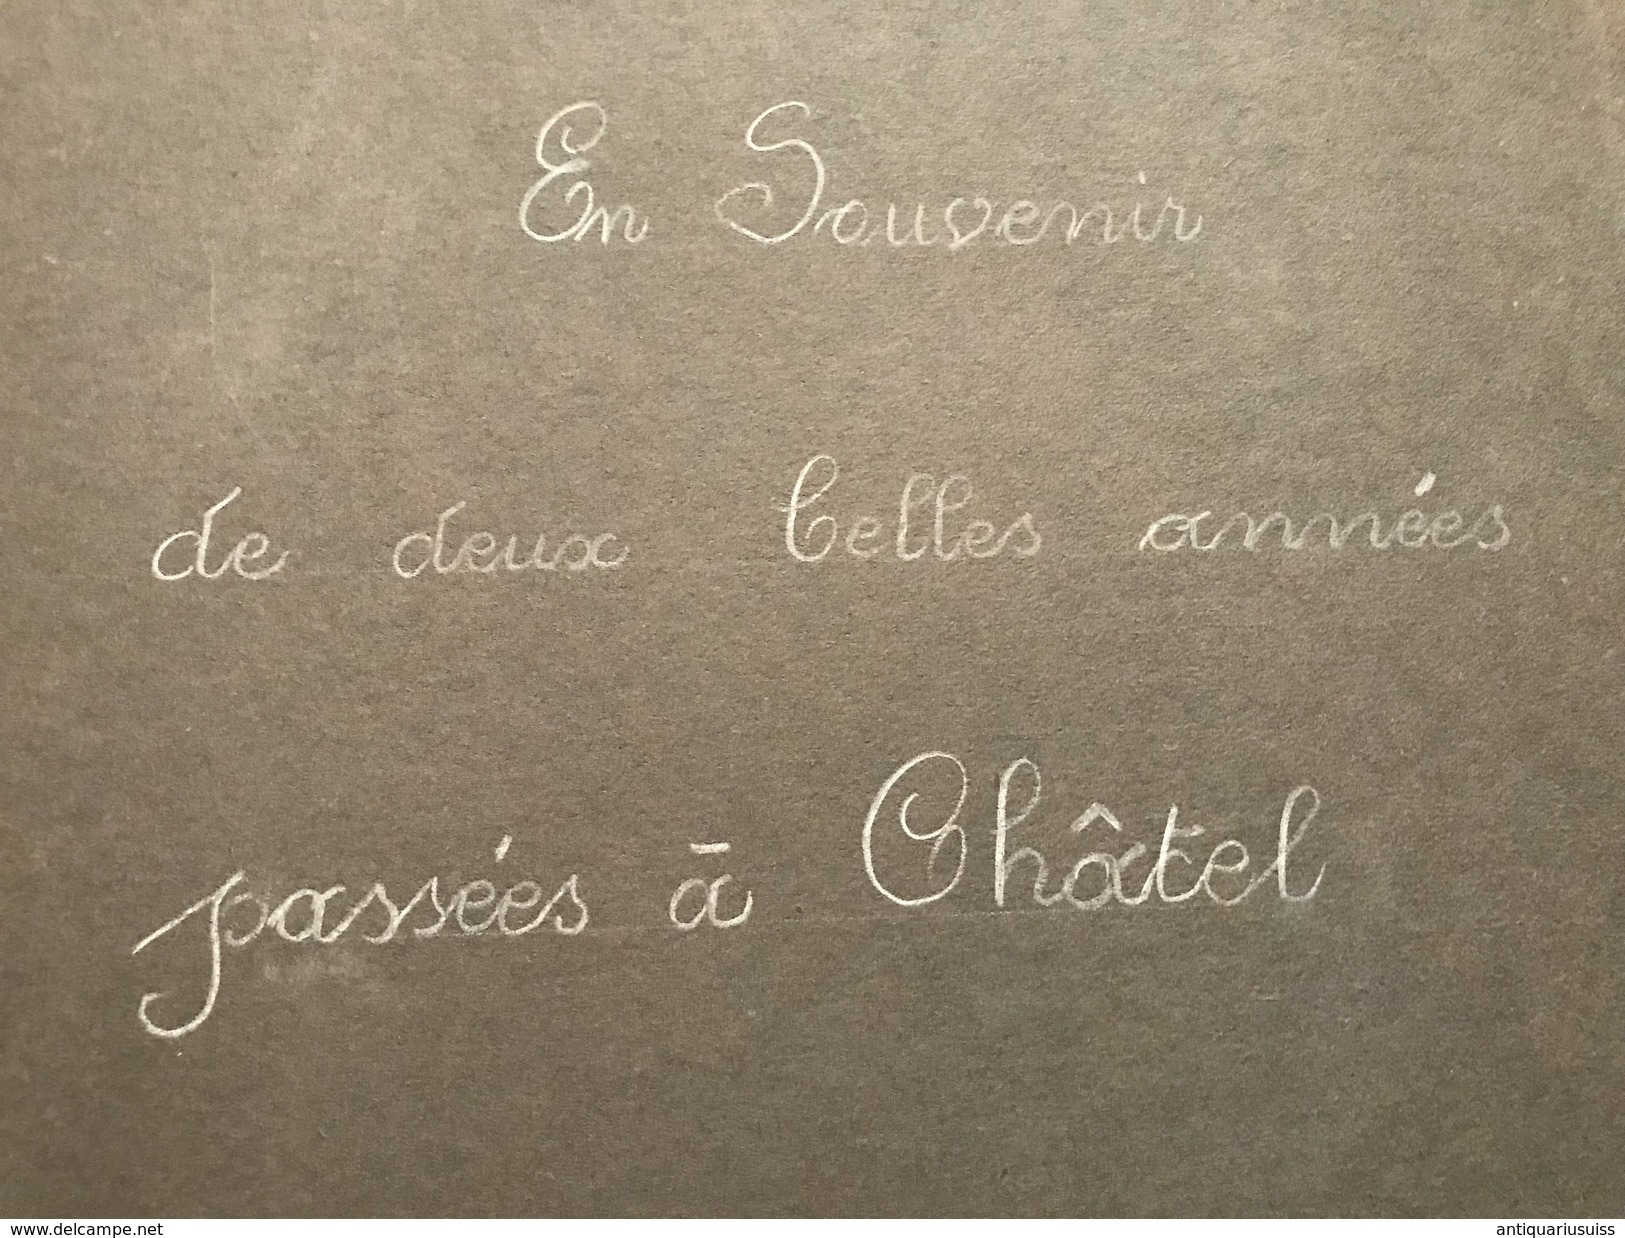 En Souvenir
de deux belles années
passées à Châtel
www.delcampe.net
antiquariusuiss